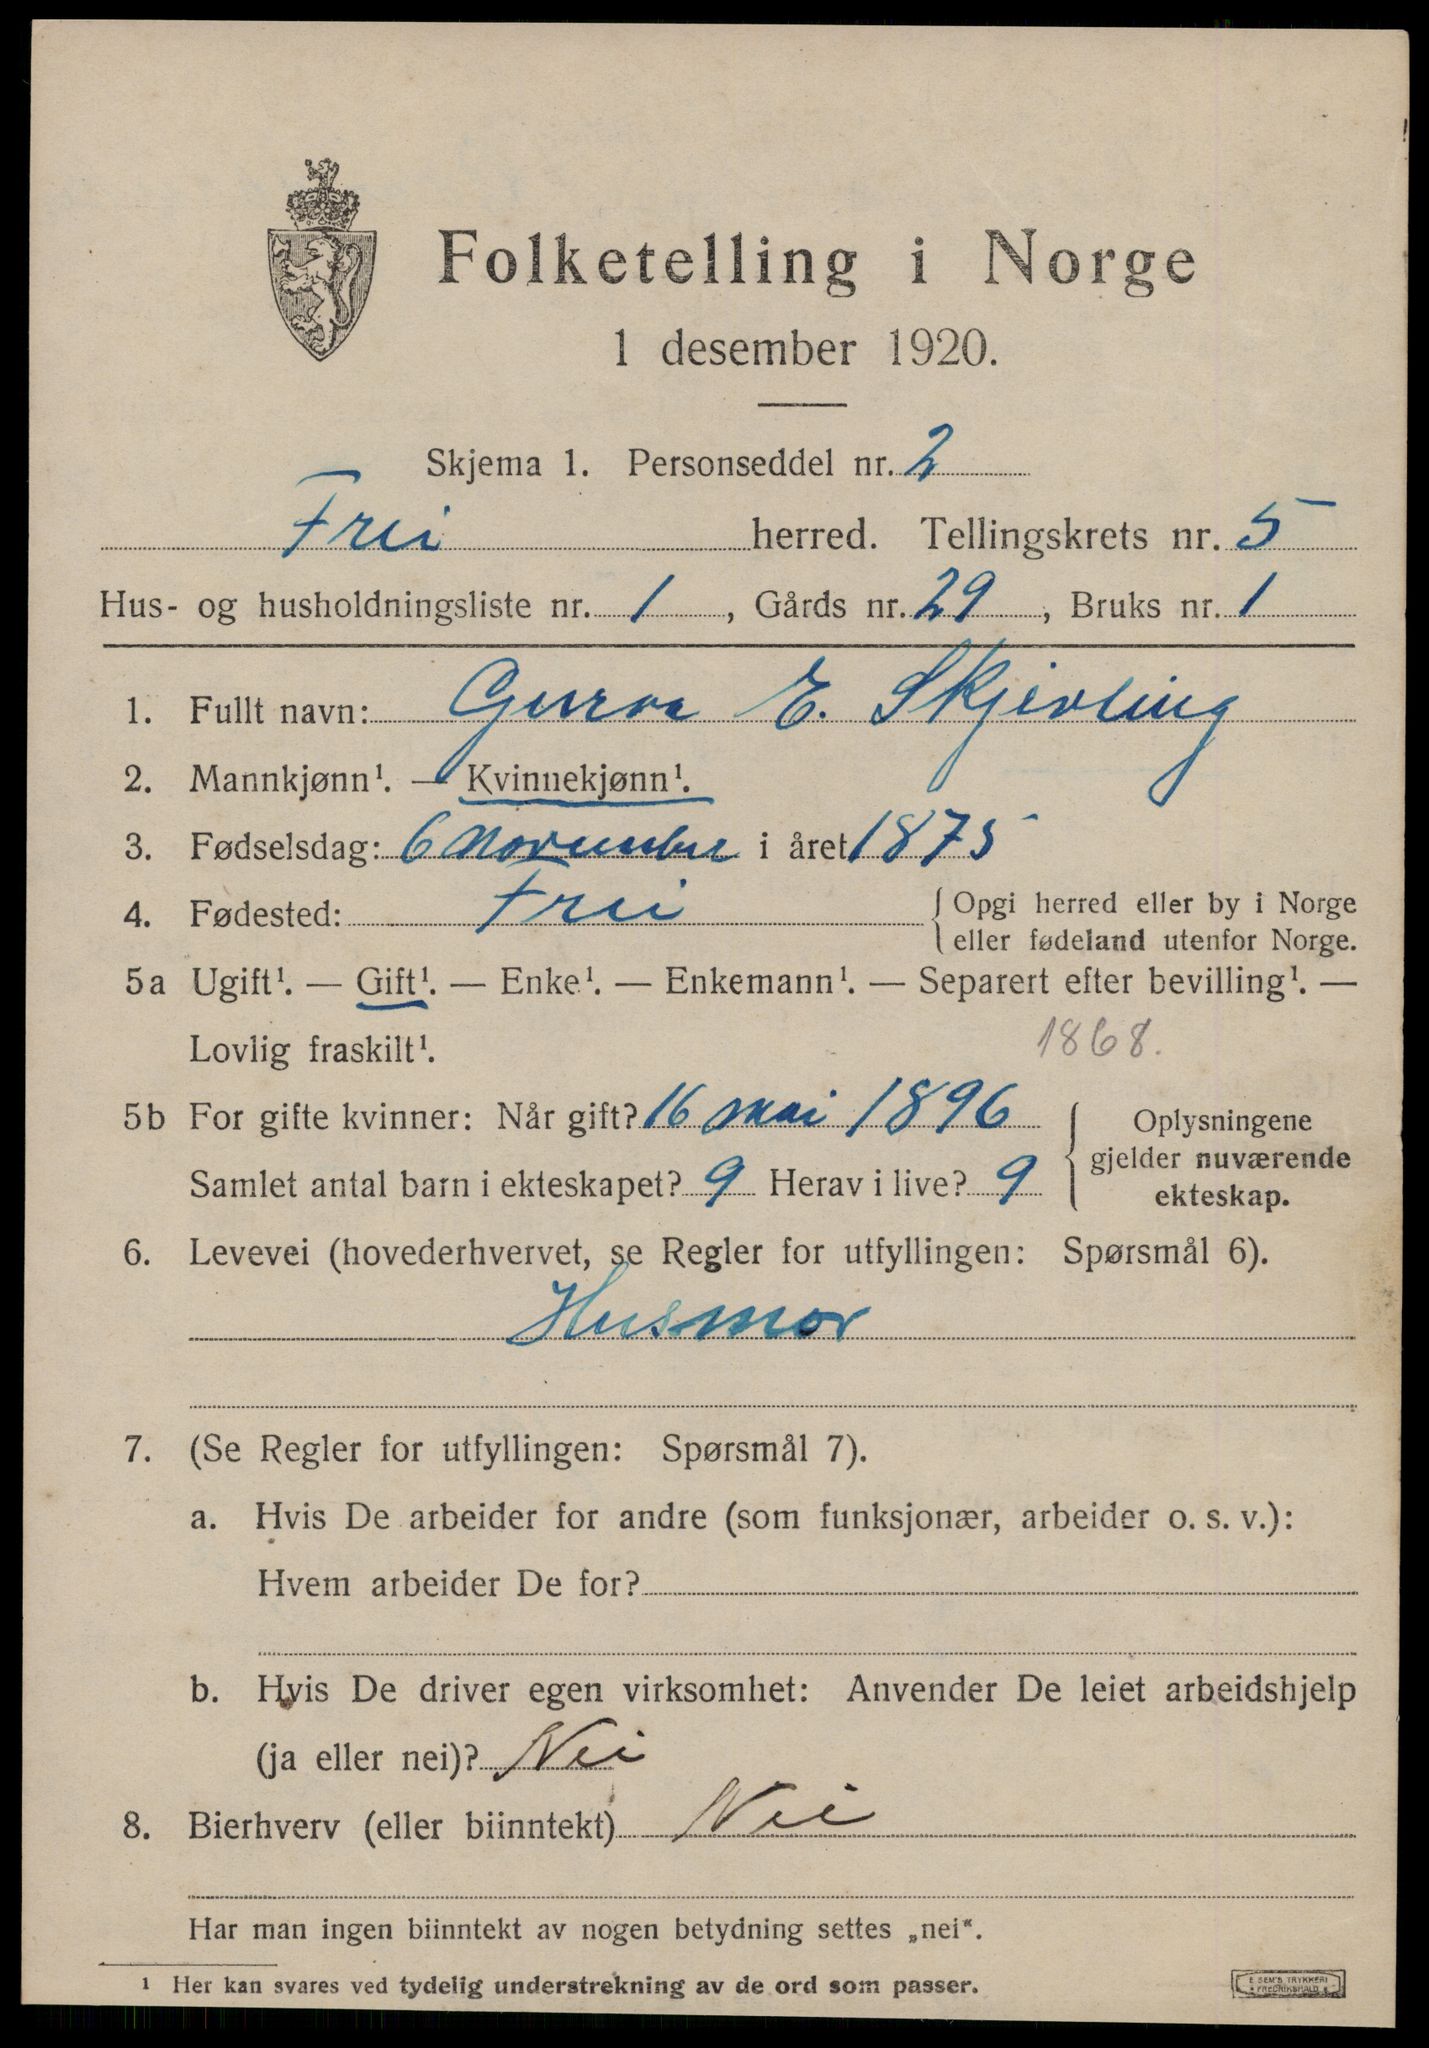 Folketelling i Norge
1 desember 1920.
Skjema 1. Personseddel nr. 2
Frei herred. Tellingskrets nr. 5
Hus- og husholdningsliste nr. 1, Gårds nr. 29, Bruks nr. 1
1. Fullt navn: Gurva E. Skjevling
2. Mannkjønn¹. — Kvinnekjønn¹.
3. Fødselsdag: 6 November i året 1875
4. Fødested: Frei { Opgi herred eller by i Norge
eller fødeland utenfor Norge.
5a Ugift¹. — Gift¹. — Enke¹. — Enkemann¹. — Separert efter bevilling¹. —
Lovlig fraskilt¹. 1868.
5b For gifte kvinner: Når gift? 16 mai 1896 { Oplysningene
gjelder nuværende
Samlet antal barn i ekteskapet? 9 Herav i live? 9 ekteskap.
6. Levevei (hovederhvervet, se Regler for utfyllingen: Spørsmål 6).
Husmor
7. (Se Regler for utfyllingen: Spørsmål 7).
a. Hvis De arbeider for andre (som funksjonær, arbeider o. s. v.):
Hvem arbeider De for?
b. Hvis De driver egen virksomhet: Anvender De leiet arbeidshjelp
(ja eller nei)? Nei
8. Bierhverv (eller biinntekt) Nei
Har man ingen biinntekt av nogen betydning settes „nei“.
¹ Her kan svares ved tydelig understrekning av de ord som passer.
E SEM'S TRYKKERI
FREDRIKSHALD